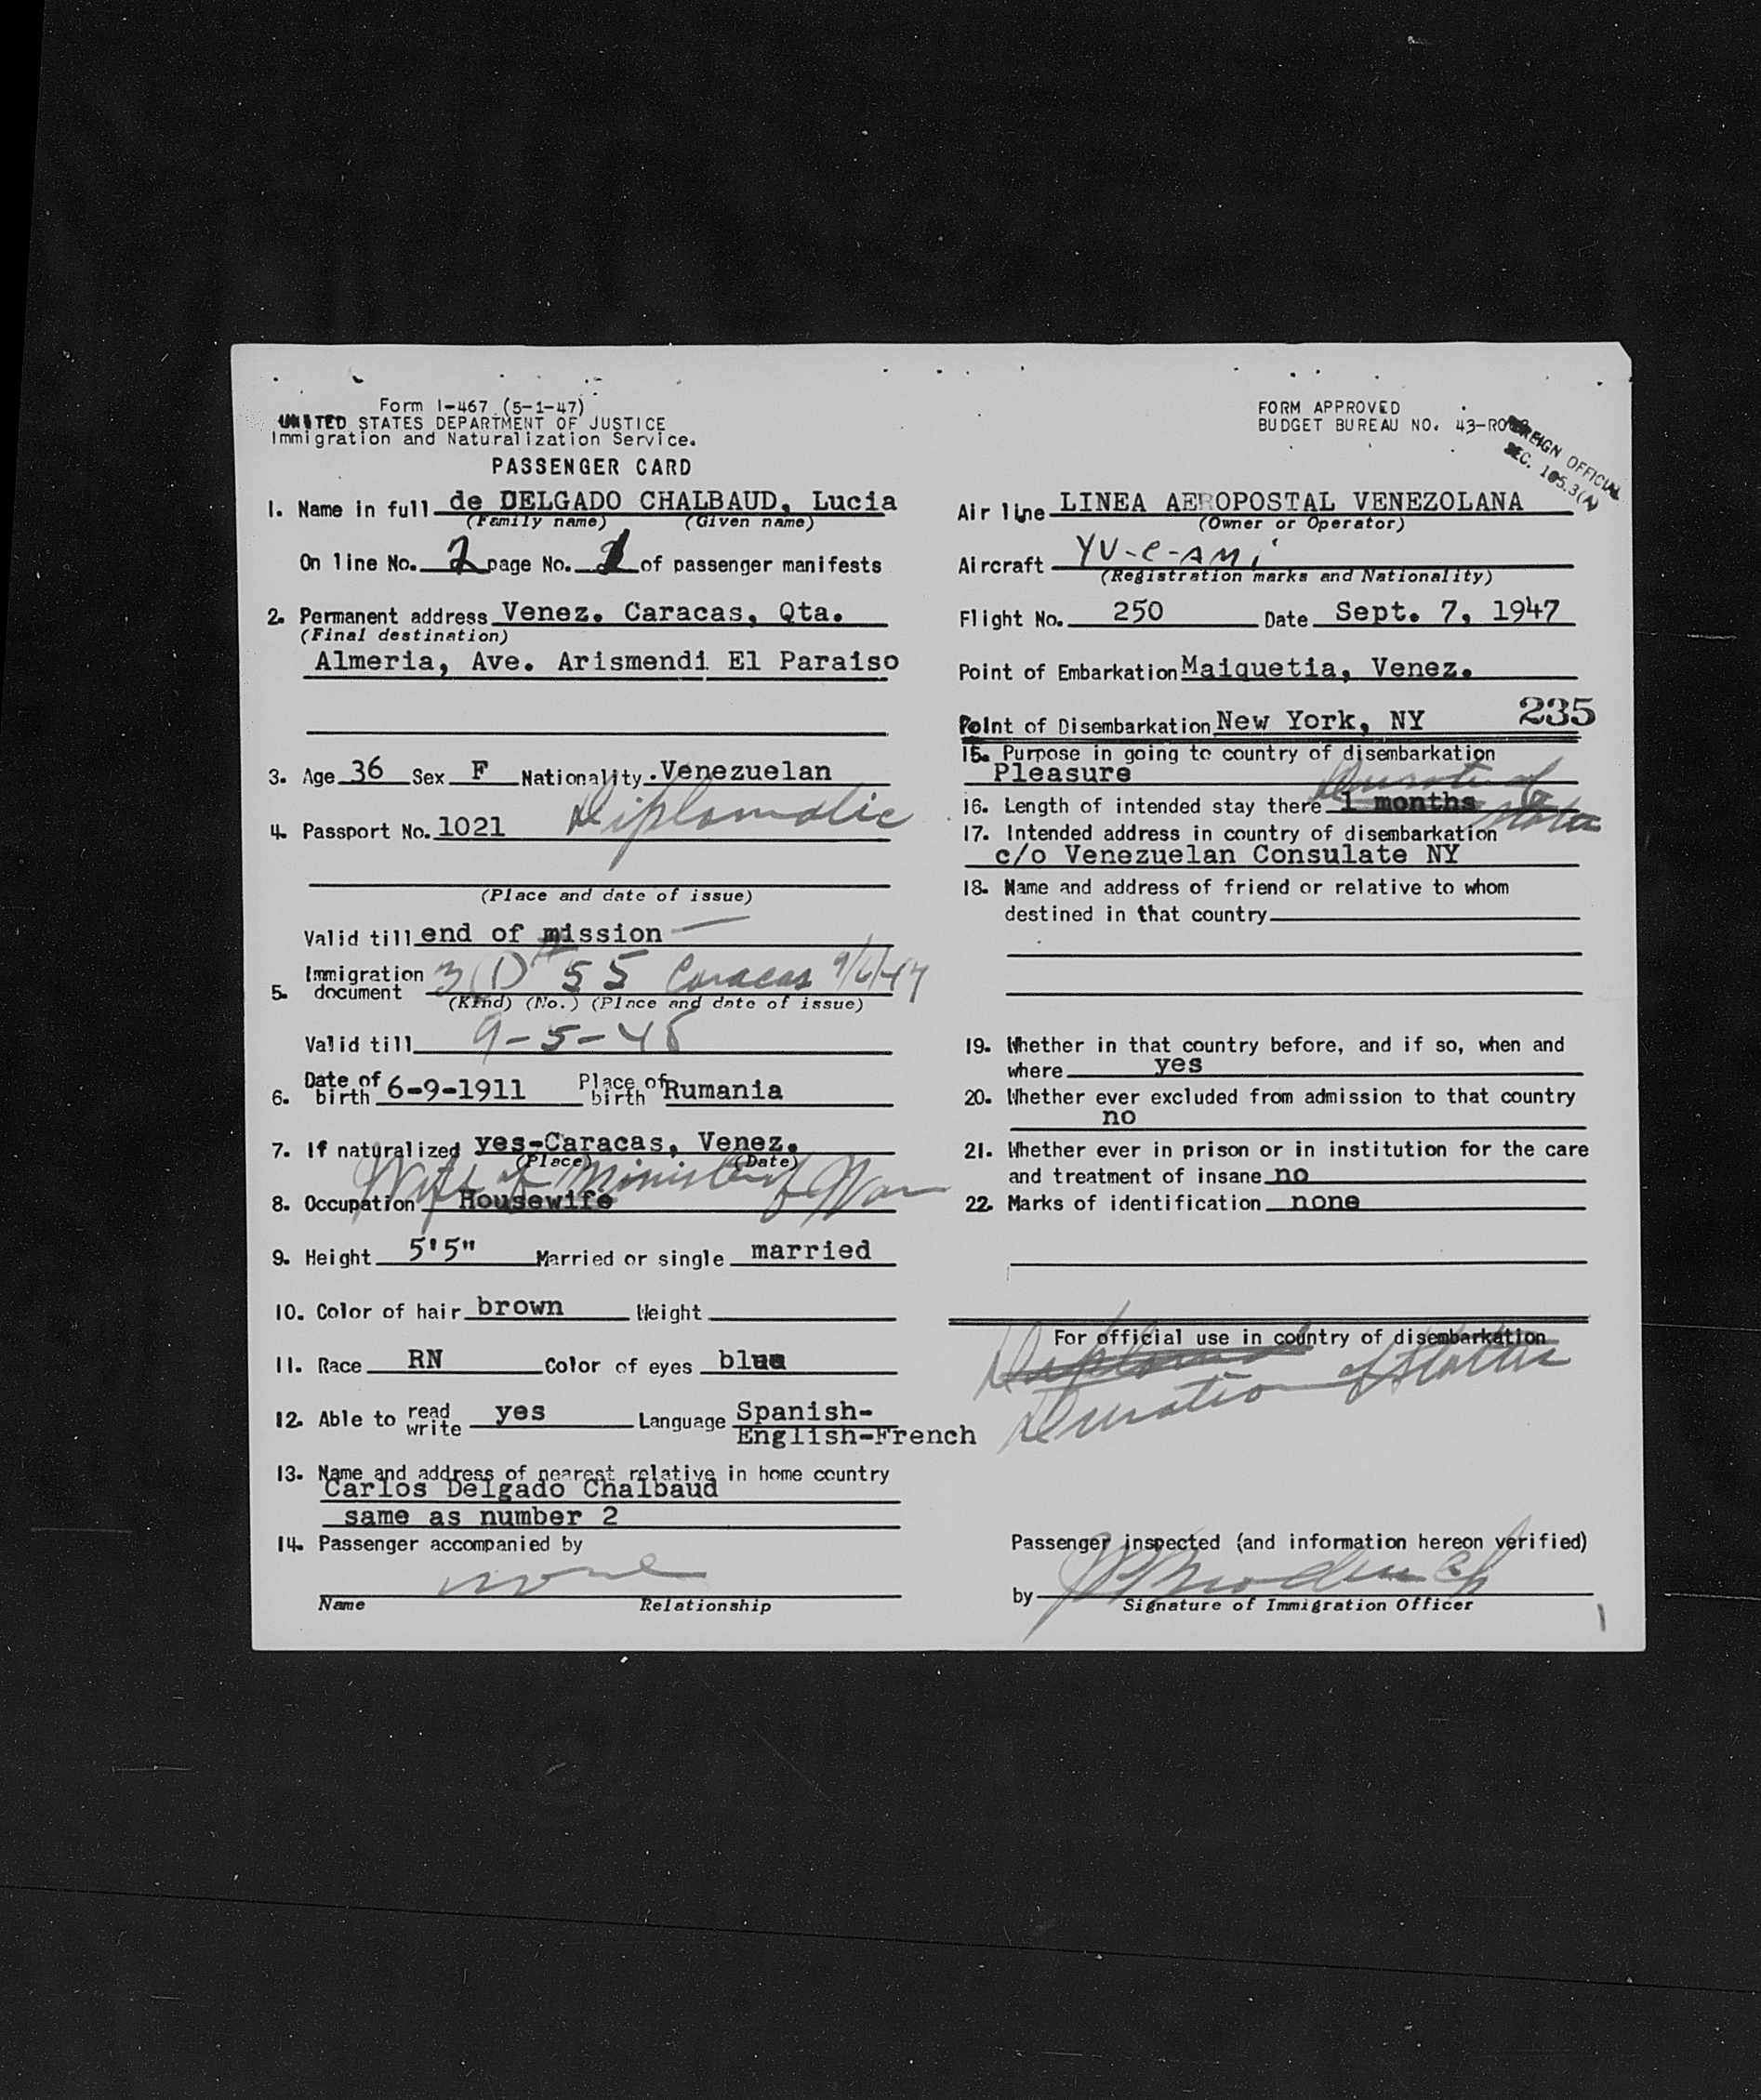 Form I-467 (5-1-47)
UNITED STATES DEPARTMENT OF JUSTICE
Immigration and Naturalization Service.
PASSENGER CARD
1. Name in full de DELGADO CHALBAUD, Lucia
(Family name) (Given name)
On line No. 2 page No. 1 of passenger manifests
2. Permanent address Venez. Caracas, Qta.
(Final destination)
Almeria, Ave. Arismendi El Paraiso
3. Age 36 Sex F Nationality Venezuelan
4. Passport No. 1021 Diplomatic
(Place and date of issue)
Valid till end of mission
5. Immigration document 3(1) #55 Caracas 9/6/47
(Kind) (No.) (Place and date of issue)
Valid till 9-5-48
6. Date of birth 6-9-1911 Place of birth Rumania
7. If naturalized yes-Caracas, Venez.
(Place) (Date)
Wife of Minister of War
8. Occupation Housewife
9. Height 5'5" Married or single married
10. Color of hair brown Weight
11. Race RN Color of eyes blue
12. Able to read write yes Language Spanish-
English-French
13. Name and address of nearest relative in home country
Carlos Delgado Chalbaud
same as number 2
14. Passenger accompanied by
none
Name Relationship
FORM APPROVED
BUDGET BUREAU NO. 43-RO
FOREIGN OFFICIAL
SEC. 105.3(A)
Air line LINEA AEROPOSTAL VENEZOLANA
(Owner or Operator)
Aircraft YV-C-AMI
(Registration marks and Nationality)
Flight No. 250 Date Sept. 7, 1947
Point of Embarkation Maiquetia, Venez.
Point of Disembarkation New York, NY 235
15. Purpose in going to country of disembarkation
Pleasure
16. Length of intended stay there 1 months Duration of Status
17. Intended address in country of disembarkation
c/o Venezuelan Consulate NY
18. Name and address of friend or relative to whom
destined in that country
19. Whether in that country before, and if so, when and
where yes
20. Whether ever excluded from admission to that country
no
21. Whether ever in prison or in institution for the care
and treatment of insane no
22. Marks of identification none
For official use in country of disembarkation
Duration of Status
Passenger inspected (and information hereon verified)
by
Signature of Immigration Officer